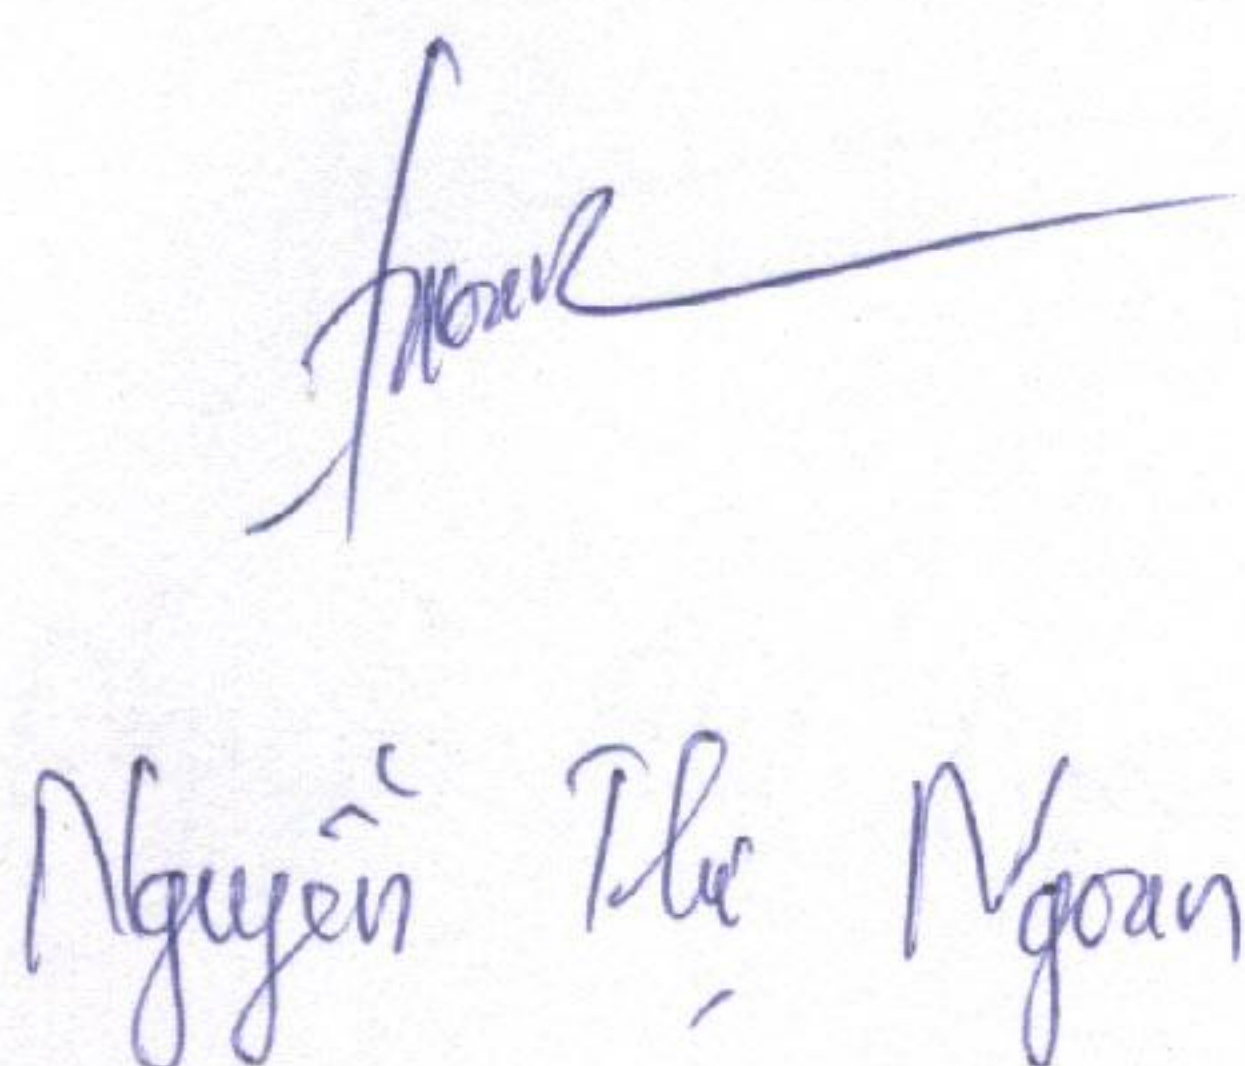 Nguyễn Thị Ngoan